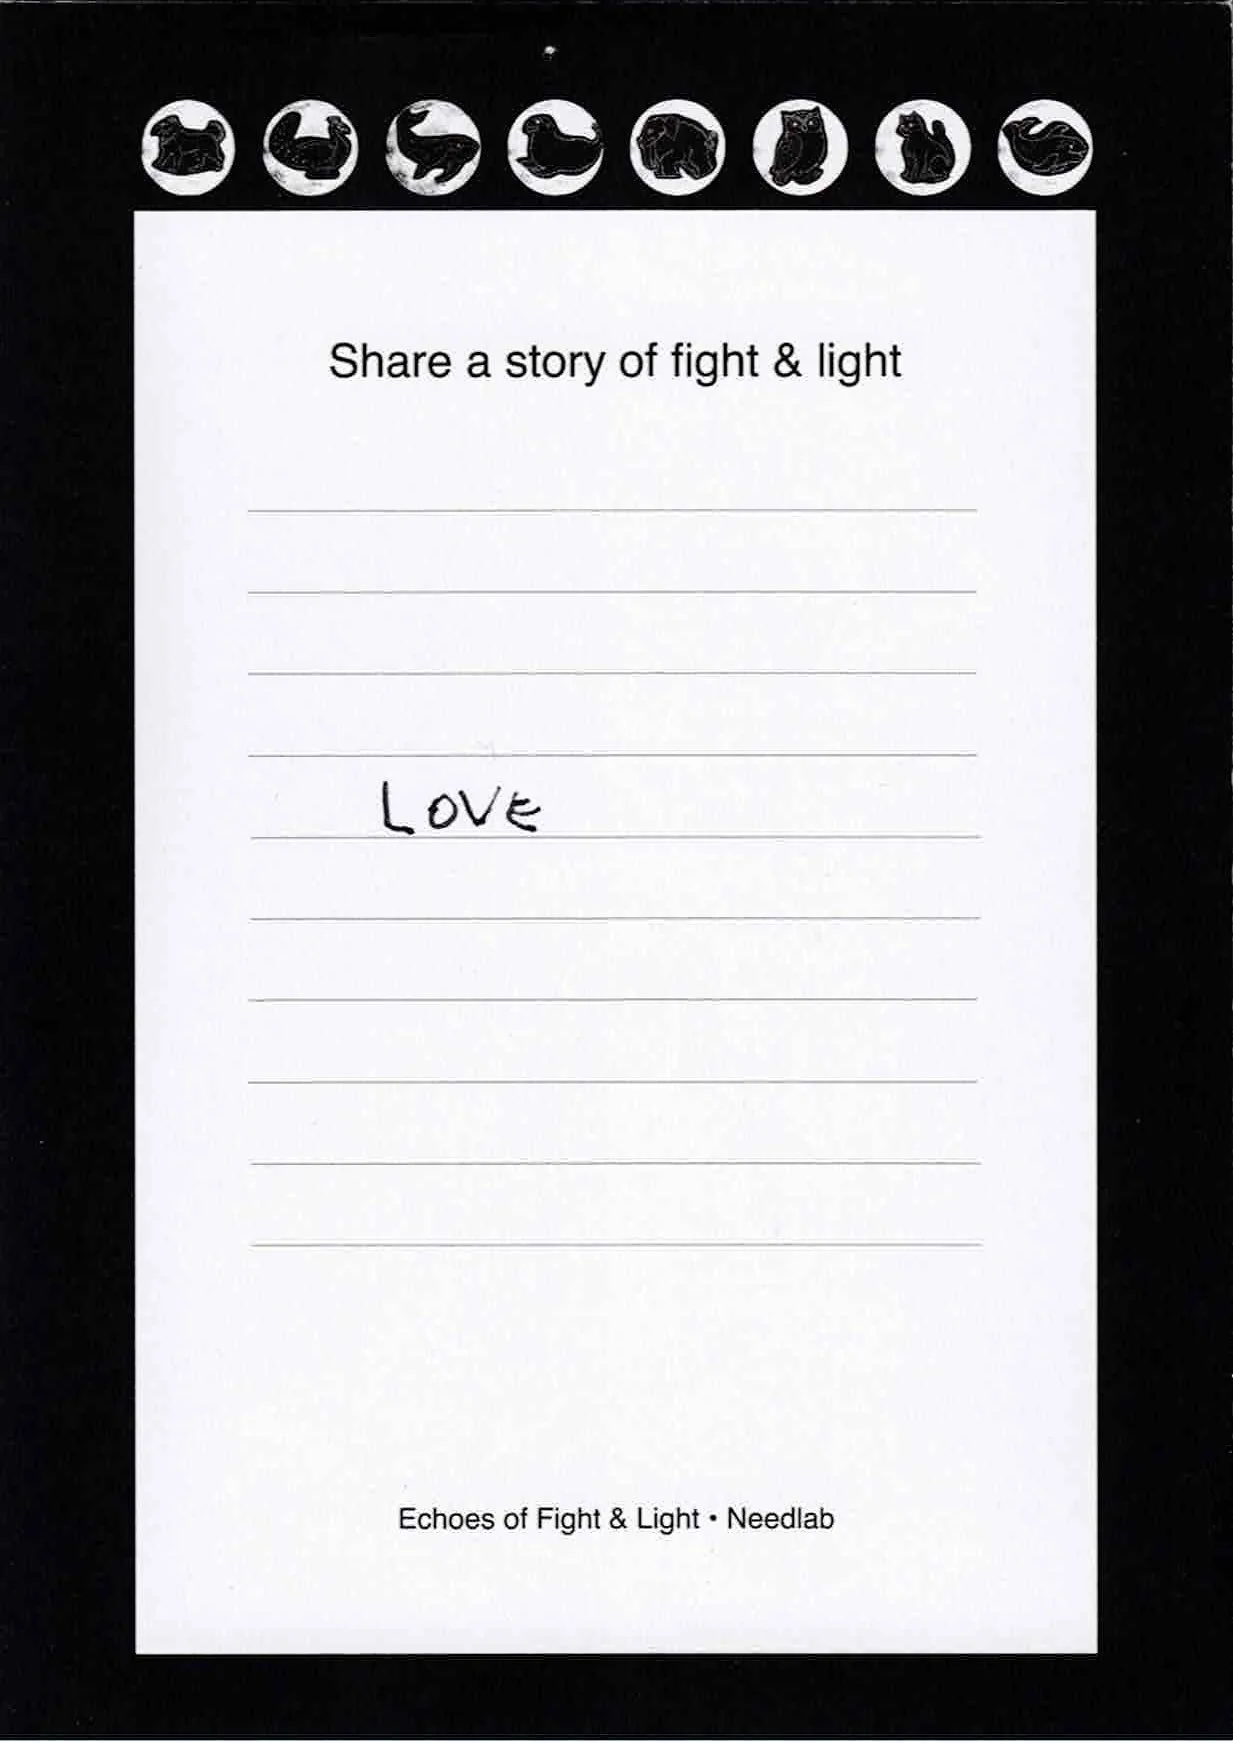 Share a story of fight & light
LOVE
Echoes of Fight & Light • Needlab